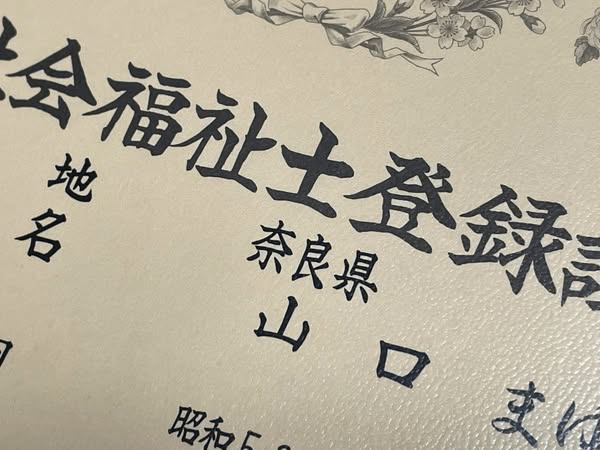 会福祉士登録
地 奈良県
名 山口 ま
昭和5